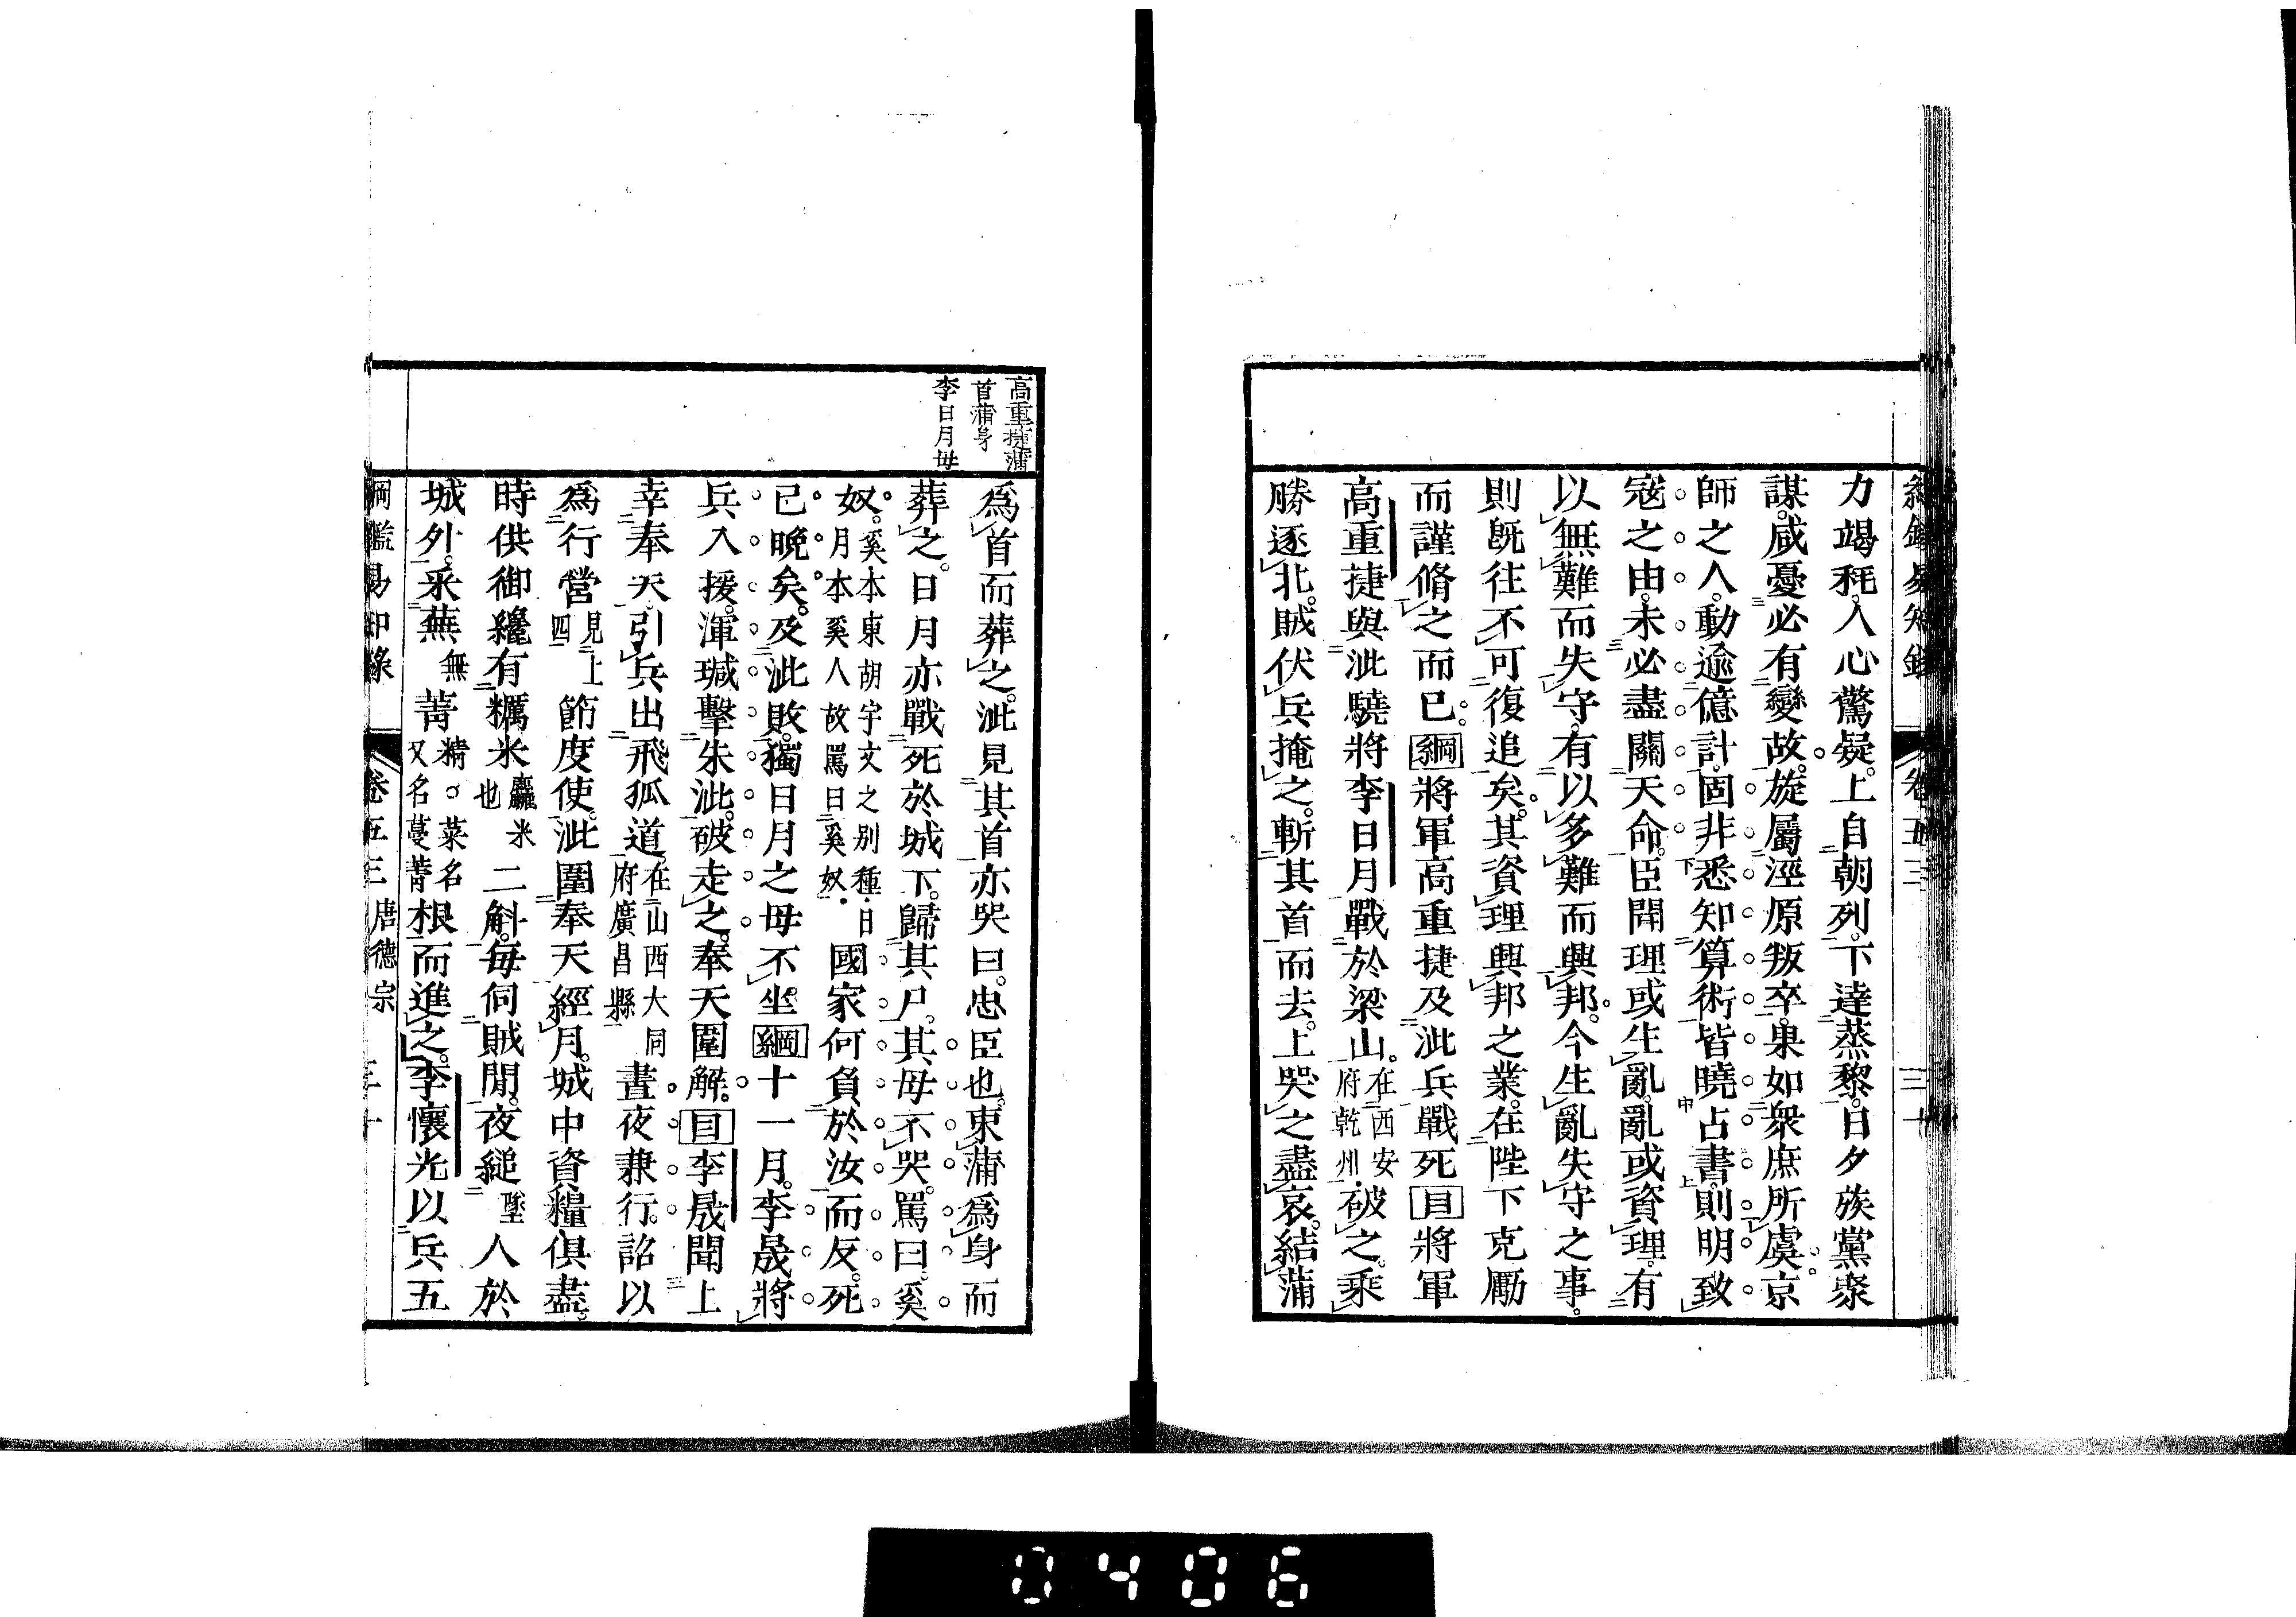 綱鑑易知錄 卷五三 三十
力竭秏。人心驚疑。上自朝列。下達蒸黎。日夕族黨聚
謀。咸憂必有變故。旋屬涇原叛卒。果如衆庶所虞。京
師之人。動逾億計。固非悉知算術。皆曉占書。則明致
寇之由。未必盡關天命。臣聞理或生亂。亂或資理。有
以無難而失守。有以多難而興邦。今生亂失守之事。
則旣往不可復追矣。其資理興邦之業。在陛下克勵
而謹脩之而已。綱將軍高重捷及泚兵戰死目將軍
高重捷與泚驍將李日月戰於梁山。在西安府乾州。破之。乘
勝逐北。賊伏兵掩之。斬其首而去。上哭之盡哀。結蒲
高重捷蒲
首蒲身
李日月母
爲首而葬之。泚見其首。亦哭曰。忠臣也。束蒲爲身而
葬之。日月亦戰死於城下。歸其尸。其母不哭。罵曰。奚
奴。奚本東胡宇文之別種。日月本奚人故罵曰奚奴。國家何負於汝而反。死
已晚矣。及泚敗。獨日月之母不坐。綱十一月。李晟將
兵入援。渾瑊擊朱泚。破走之。奉天圍解。目李晟聞上
幸奉天。引兵出飛狐道。在山西大同府廣昌縣晝夜兼行。詔以
爲行營見上四節度使。泚圍奉天經月。城中資糧俱盡。
時供御纔有糲米麤米也二斛。每伺賊閒。夜縋墜人於
城外。采蕪無菁精。菜名又名蔓菁根而進之。李懷光以兵五
綱鑑易知錄 卷五三 唐德宗 三十一